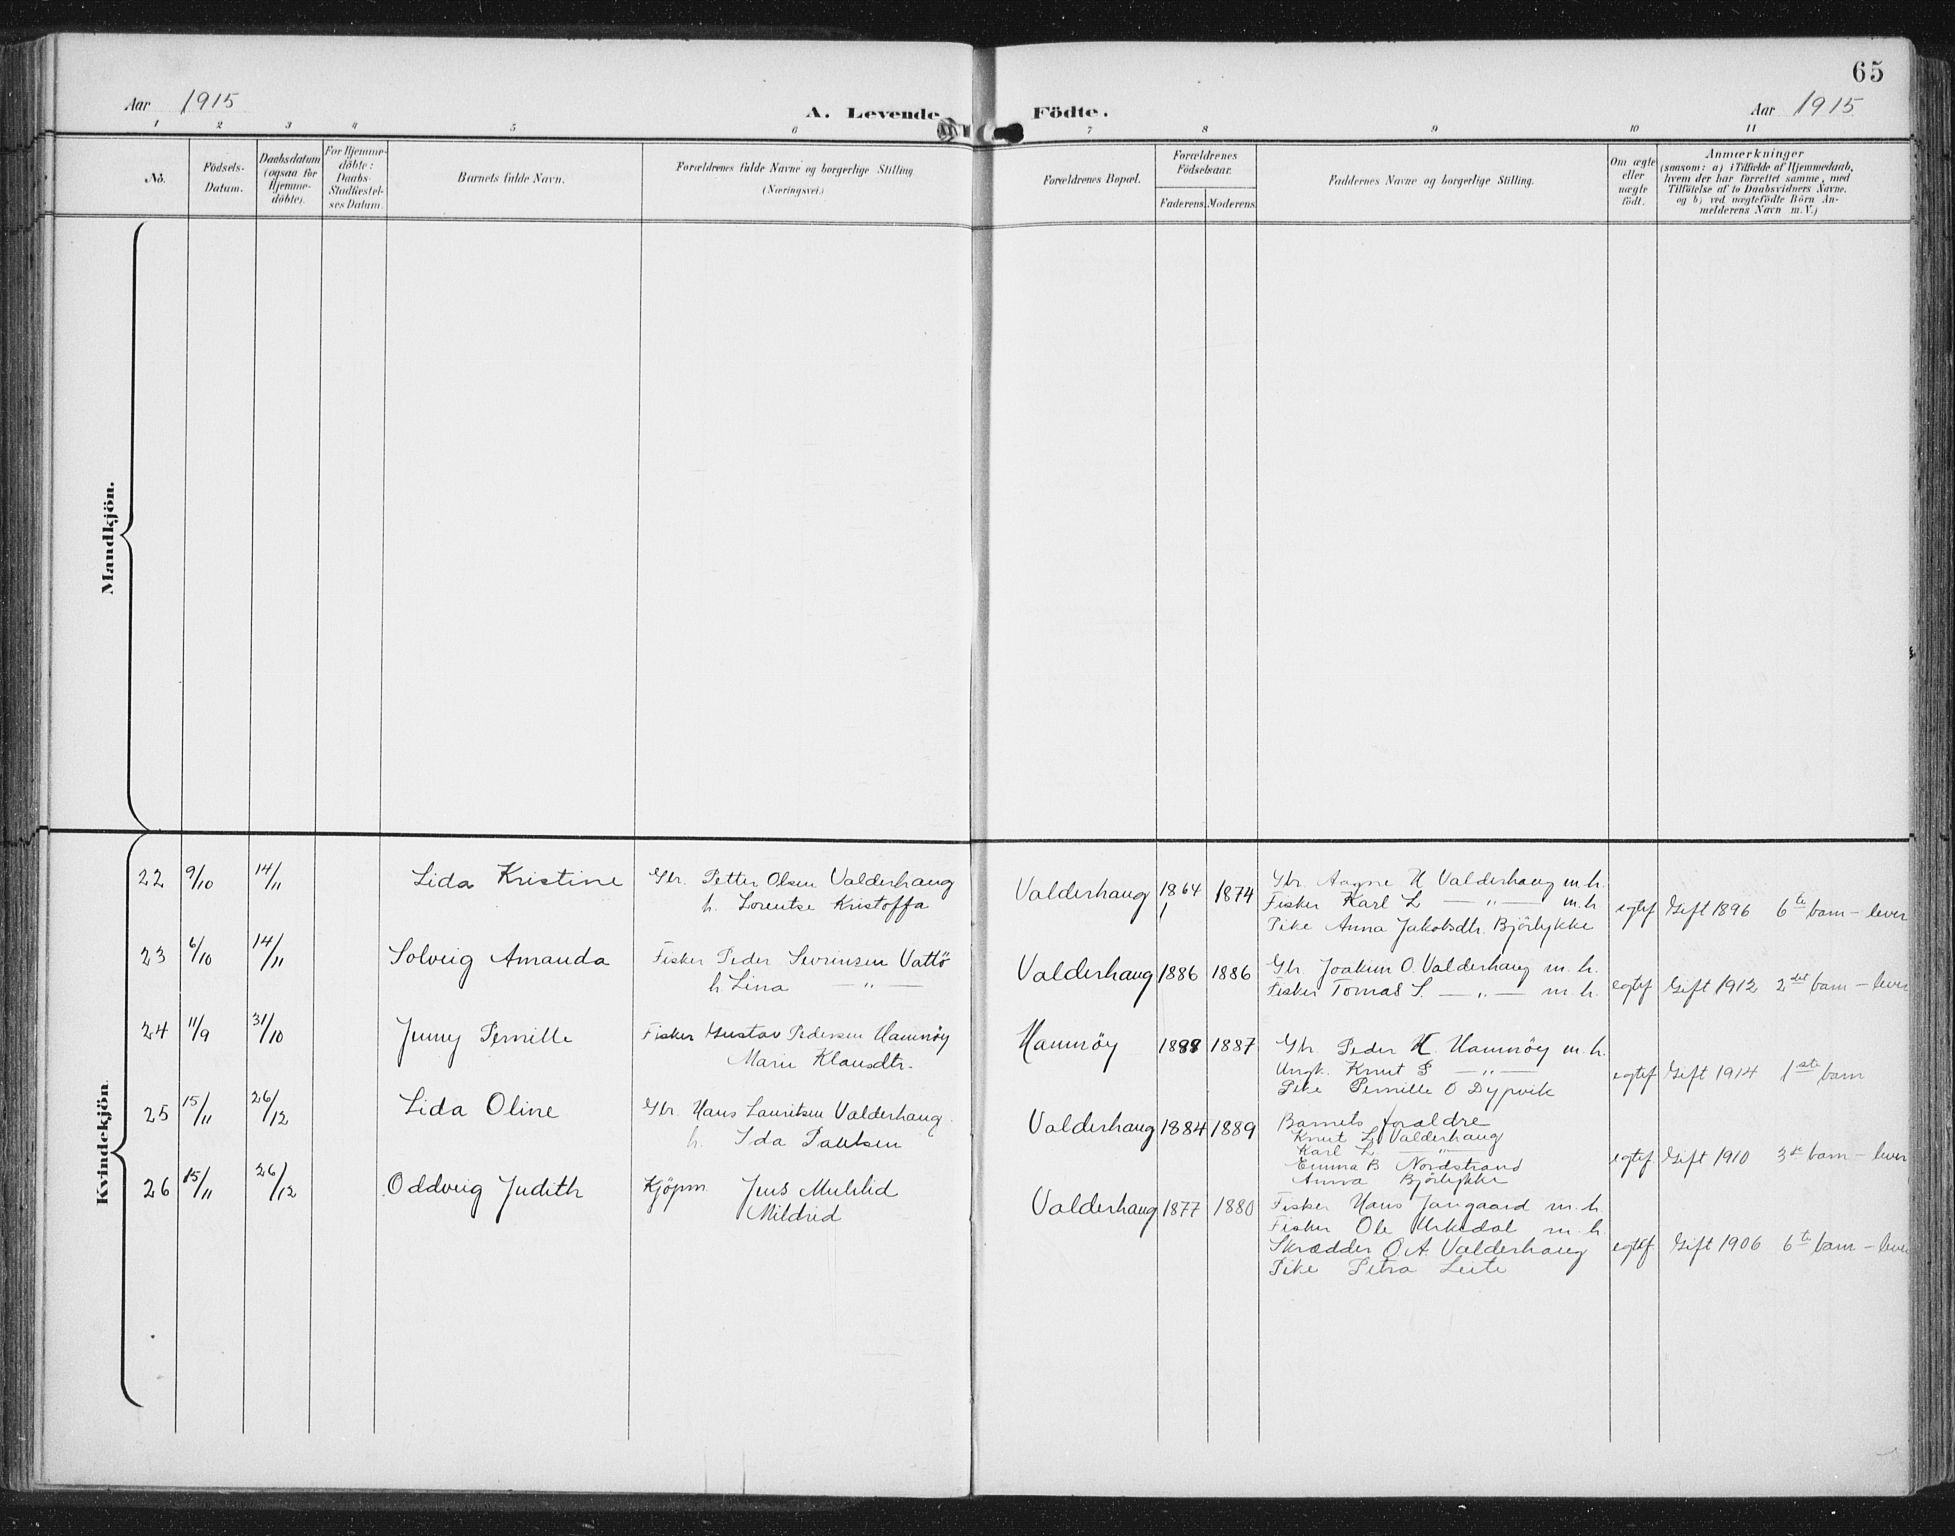 65
Aar 1915
A. Levende Födte.
Aar 1915
1 2 3 4 5 6 7 8 9 10 11
No.
Födsels-Datum.
Daabsdatum (ogsaa for Hjemme-döbte).
For Hjemme-döbte: Daabs-Stadfæstel-ses Datum.
Barnets fulde Navn.
Forældrenes fulde Navne og borgerlige Stilling
(Næringsvei.)
Forældrenes Bopæl.
Forældrenes Födselsaar.
Faderens. Moderens.
Faddernes Navne og borgerlige Stilling.
Om ægte eller uægte födt.
Anmærkninger
(saasom: a) i Tilfælde af Hjemmedaab,
hvem der har forrettet samme, med
Tilföielse af to Daabsvidners Navne.
og b) ved uægtefödte Börn An-
melderens Navn m. V.)
Mandkjön.
Kvindekjön.
22 9/10 14/11 Lida Kristine
Gbr. Petter Olsen Valderhaug
h. Lorentse Kristoffa
Valderhaug 1864 1874
Gbr. Aagne H Valderhaug m. h.
Fisker Karl L — " — m. h
Pike Anna Jakobsdtr. Björlykke
egtef Gift 1896 6te barn - lever
23 6/10 14/11 Solveig Amanda
Fisker Peder Sevrinsen Vattö
h. Lina — " —
Valderhaug 1886 1886
Gbr. Joakim O. Valderhaug m. h.
Fisker Tomas S. — " — m. h.
egtef Gift 1912 2det barn - lever
24 11/9 31/10 Jenny Pernille
Fisker Gustav Pedersen Hamnöy
Marie Klausdtr.
Hamnöy 1888 1887
Gbr. Peder H. Hamnöy m. h.
Ungk. Knut P — " —
Pike Pernille O Dypvik
egtef Gift 1914 1ste barn
25 15/11 26/12 Lida Oline
Gbr. Hans Lauritsen Valderhaug.
h. Ida Paulsen
Valderhaug 1884 1889
Barnets foraldre
Knut L Valderhaug
Karl L — " —
Emma B Nordstrand
Anna Björlykke
egtef. Gift 1910 3de barn - lever
26 15/11 26/12 Oddveig Judith
Kjöpm. Jens Muklid
Mildrid
Valderhaug 1877 1880
Fisker Hans Jangaard m. h.
Fisker Ole Urkedal m. h
Skrædder O A. Valderhaug
Pike Petra Leite
egtef Gift 1906 6te barn - lever